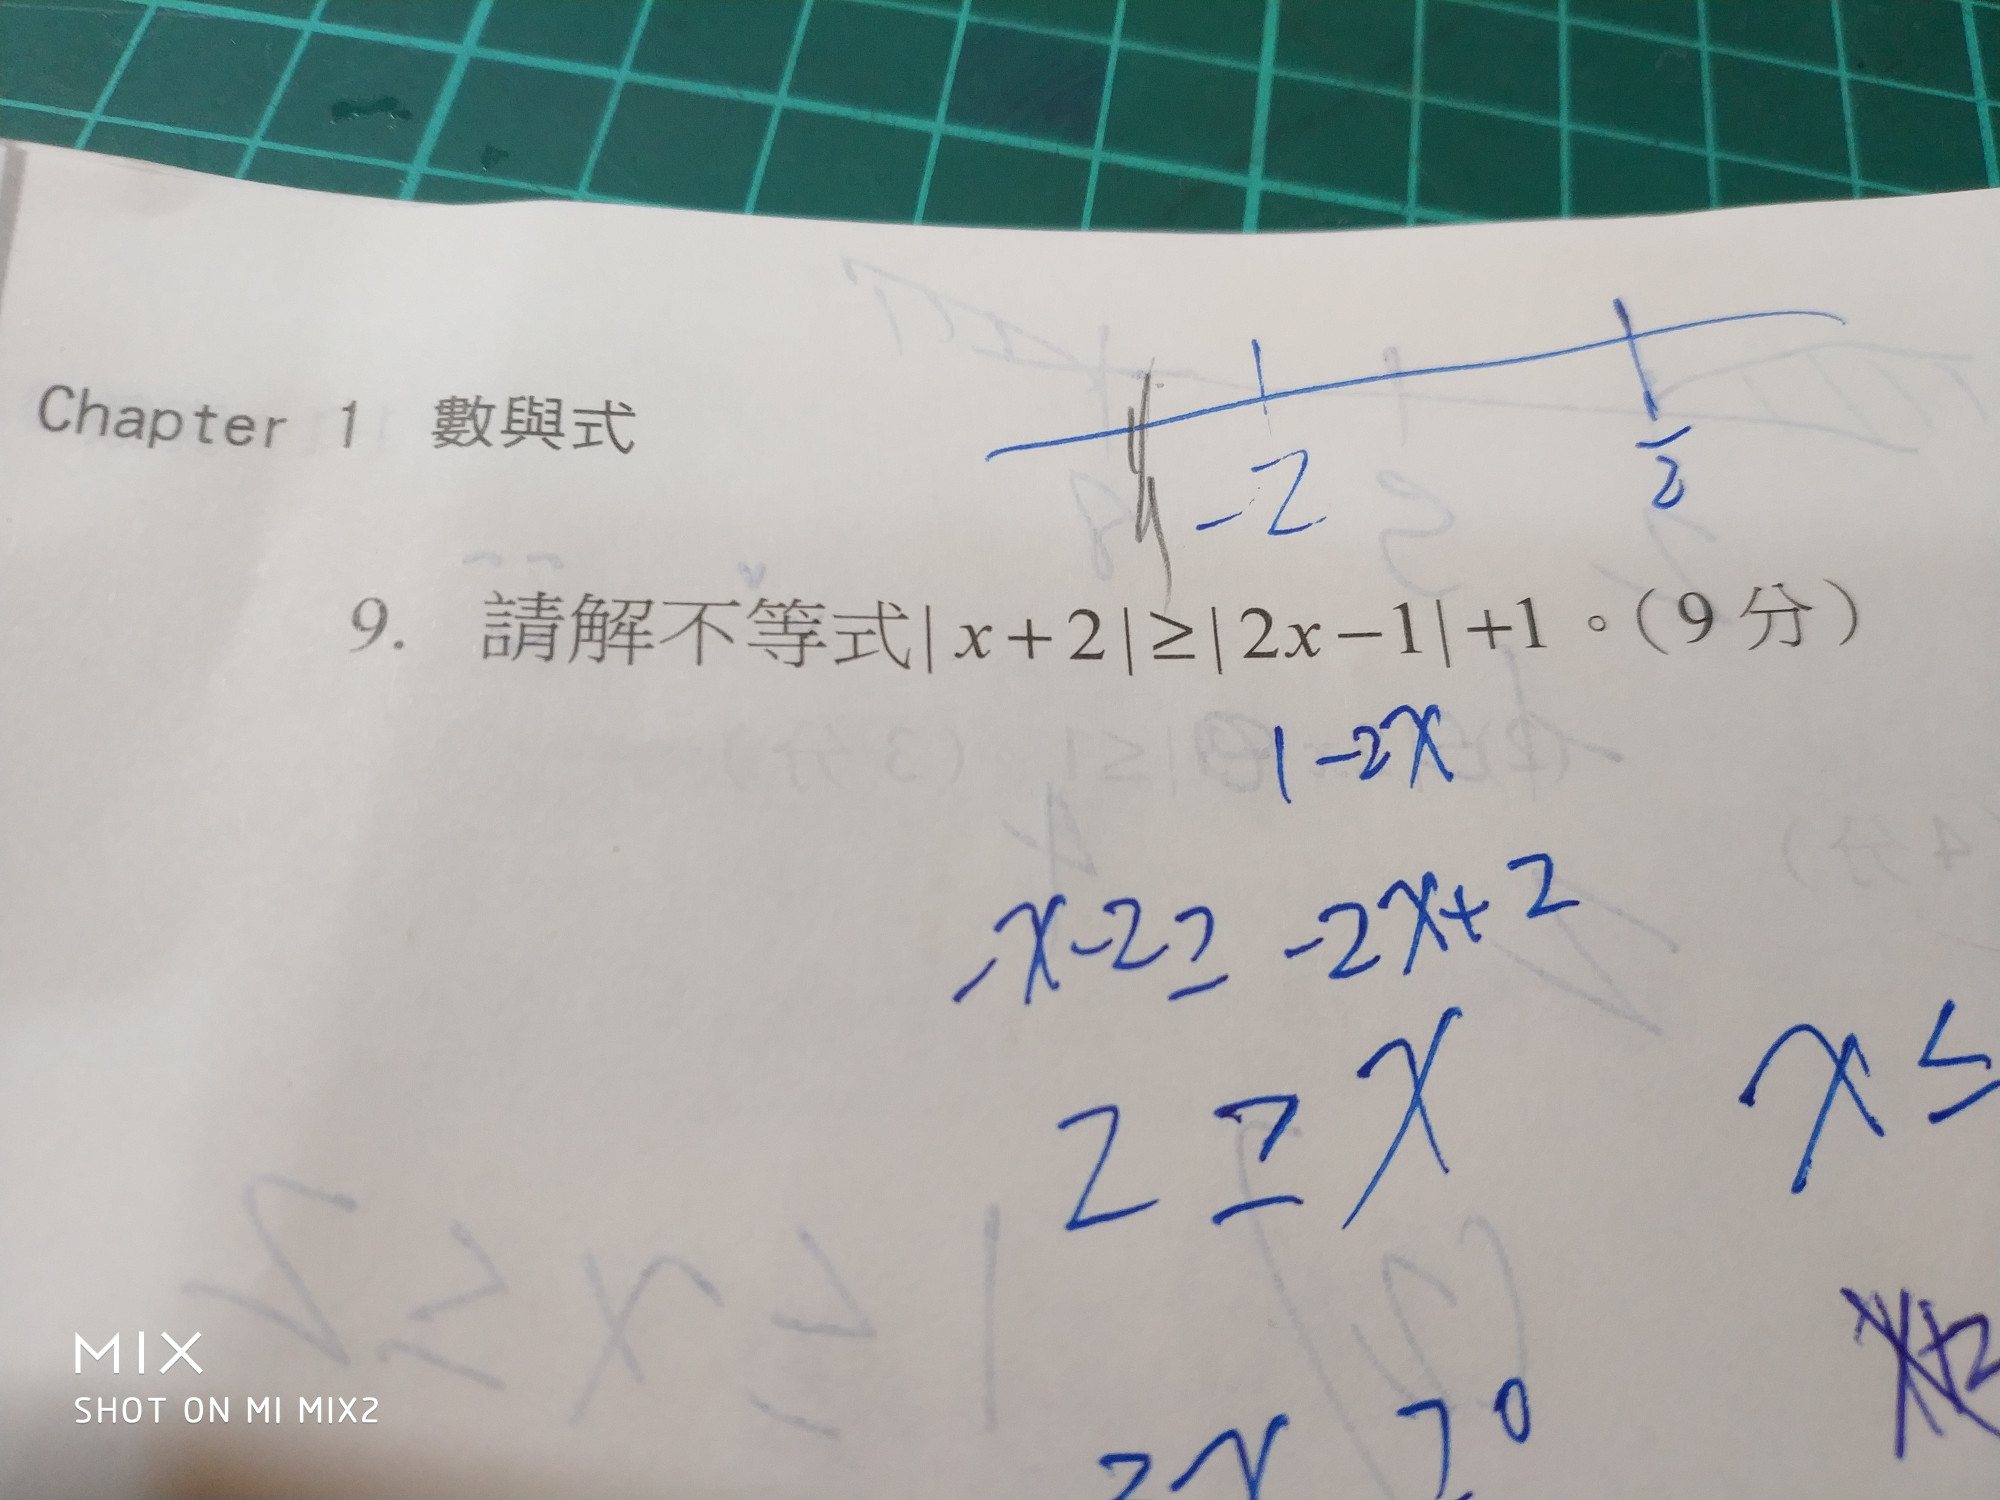 -2
2
Chapter 1 數與式
9. 請解不等式|x+2|≥|2x-1|+1。(9分)
1-2x
-x-2≥ -2x+2
2≥x
x≤
≥0
MIX
SHOT ON MI MIX2